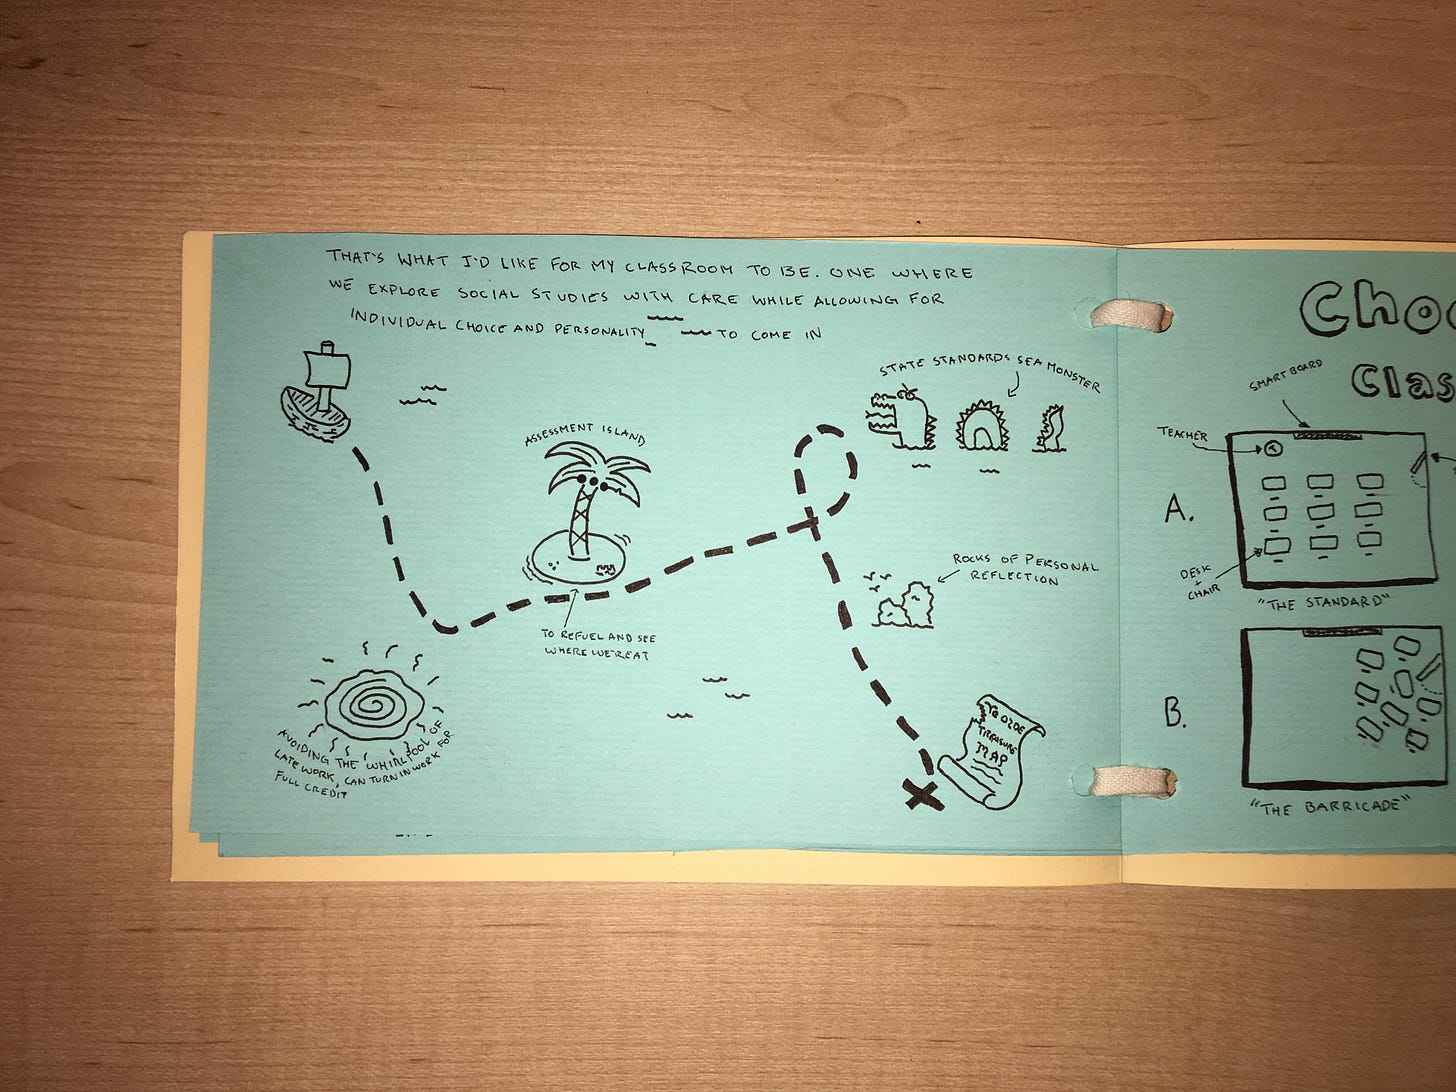 THAT'S WHAT I'D LIKE FOR MY CLASSROOM TO BE. ONE WHERE
WE EXPLORE SOCIAL STUDIES WITH CARE WHILE ALLOWING FOR
INDIVIDUAL CHOICE AND PERSONALITY TO COME IN
STATE STANDARDS SEA MONSTER
ASSESSMENT ISLAND
TO REFUEL AND SEE
WHERE WE'RE AT
ROCKS OF PERSONAL
REFLECTION
AVOIDING THE WHIRLPOOL OF
LATE WORK, CAN TURN IN WORK FOR
FULL CREDIT
YE OLDE
TREASURE
MAP
Choo
Clas
SMART BOARD
TEACHER
A.
DESK
+
CHAIR
"THE STANDARD"
B.
"THE BARRICADE"